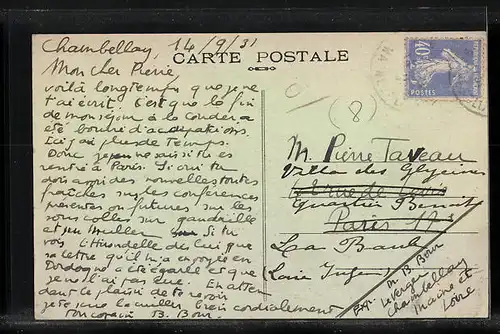 Chambellay, 14/9/31
CARTE POSTALE
Mon cher Pierre,
voilà longtemps que je ne
t'ai écrit. C'est que la fin
de mon séjour à la
a été bourré d'occupations.
Ici j'ai plus de temps.
Donc je ne sais si tu es
rentré à Paris. Si oui tu
dois avoir des nouvelles toutes
fraîches sur les conférences
présentes ou futures sur les
sous colles sur
et peu Muller. Si tu
vois L'Hirondelle dis lui que
sa lettre qu'il m'a envoyée en
Dordogne a été égarée et que
je ne l'ai pas lue. En atten
dant le plaisir de te revoir
je te serre la main bien cordialement
ton copain B. Bour
(8)
40c
POSTES
M. Pierre Taveau
Villa des Glycines
Quartier Benoit
Paris 17e
La Baule
(Loire Infre)
Exp. M. B. Bour
Le Verger
Chambellay
Maine et
Loire